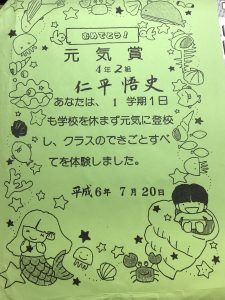 おめでとう!
元気賞
4年2組
仁平悟史
あなたは、1学期1日
も学校を休まず元気に登校
し、クラスのできごとすべ
てを体験しました。
平成6年 7月20日